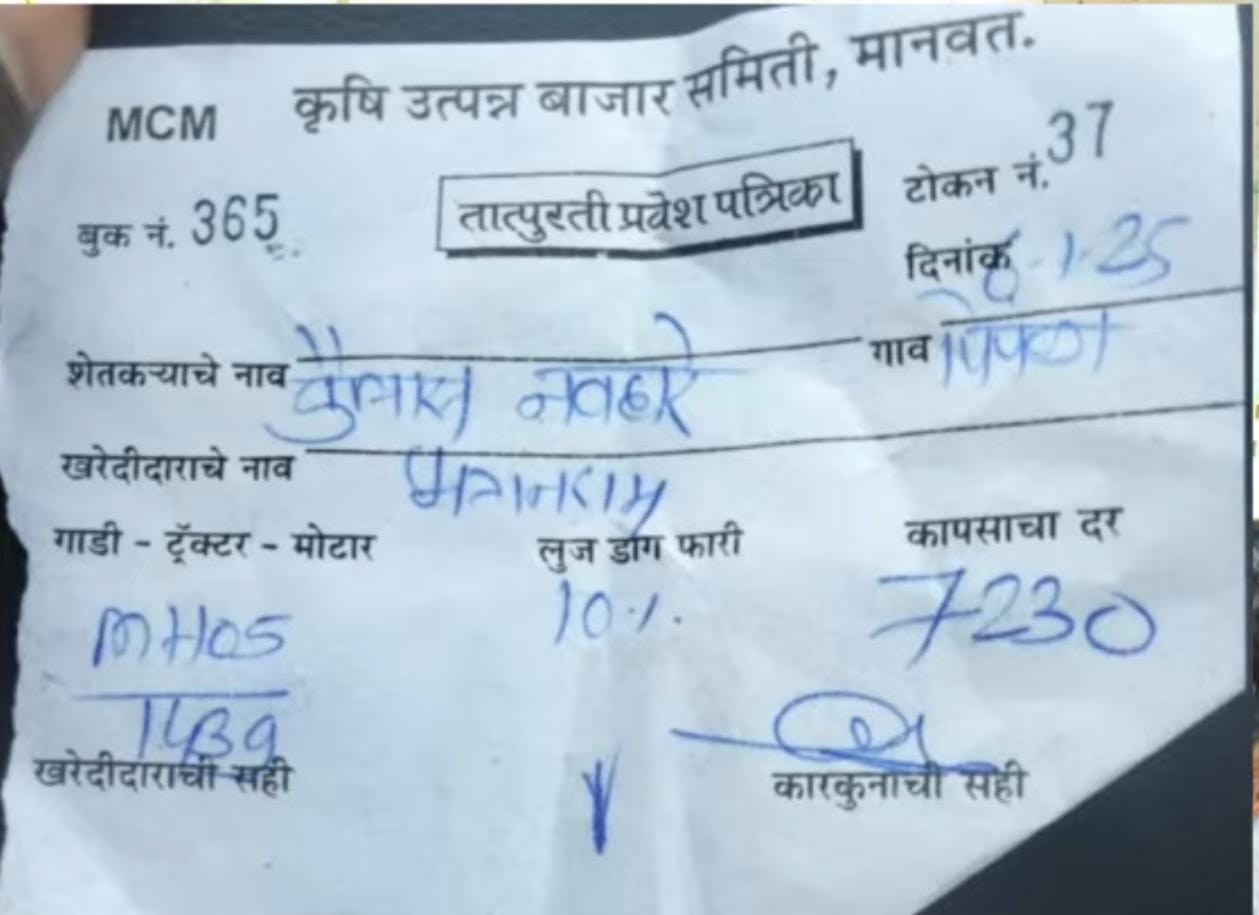 MCM कृषि उत्पन्न बाजार समिती, मानवत.
बुक नं. 365 तात्पुरती प्रवेश पत्रिका टोकन नं. 37
दिनांक 6.1.25
शेतकऱ्याचे नाव कैलास नवहारे गाव
खरेदीदाराचे नाव
गाडी - ट्रॅक्टर - मोटार लुज डाग फारी कापसाचा दर
MH05 10 7230
1439
खरेदीदाराची सही कारकुनाची सही